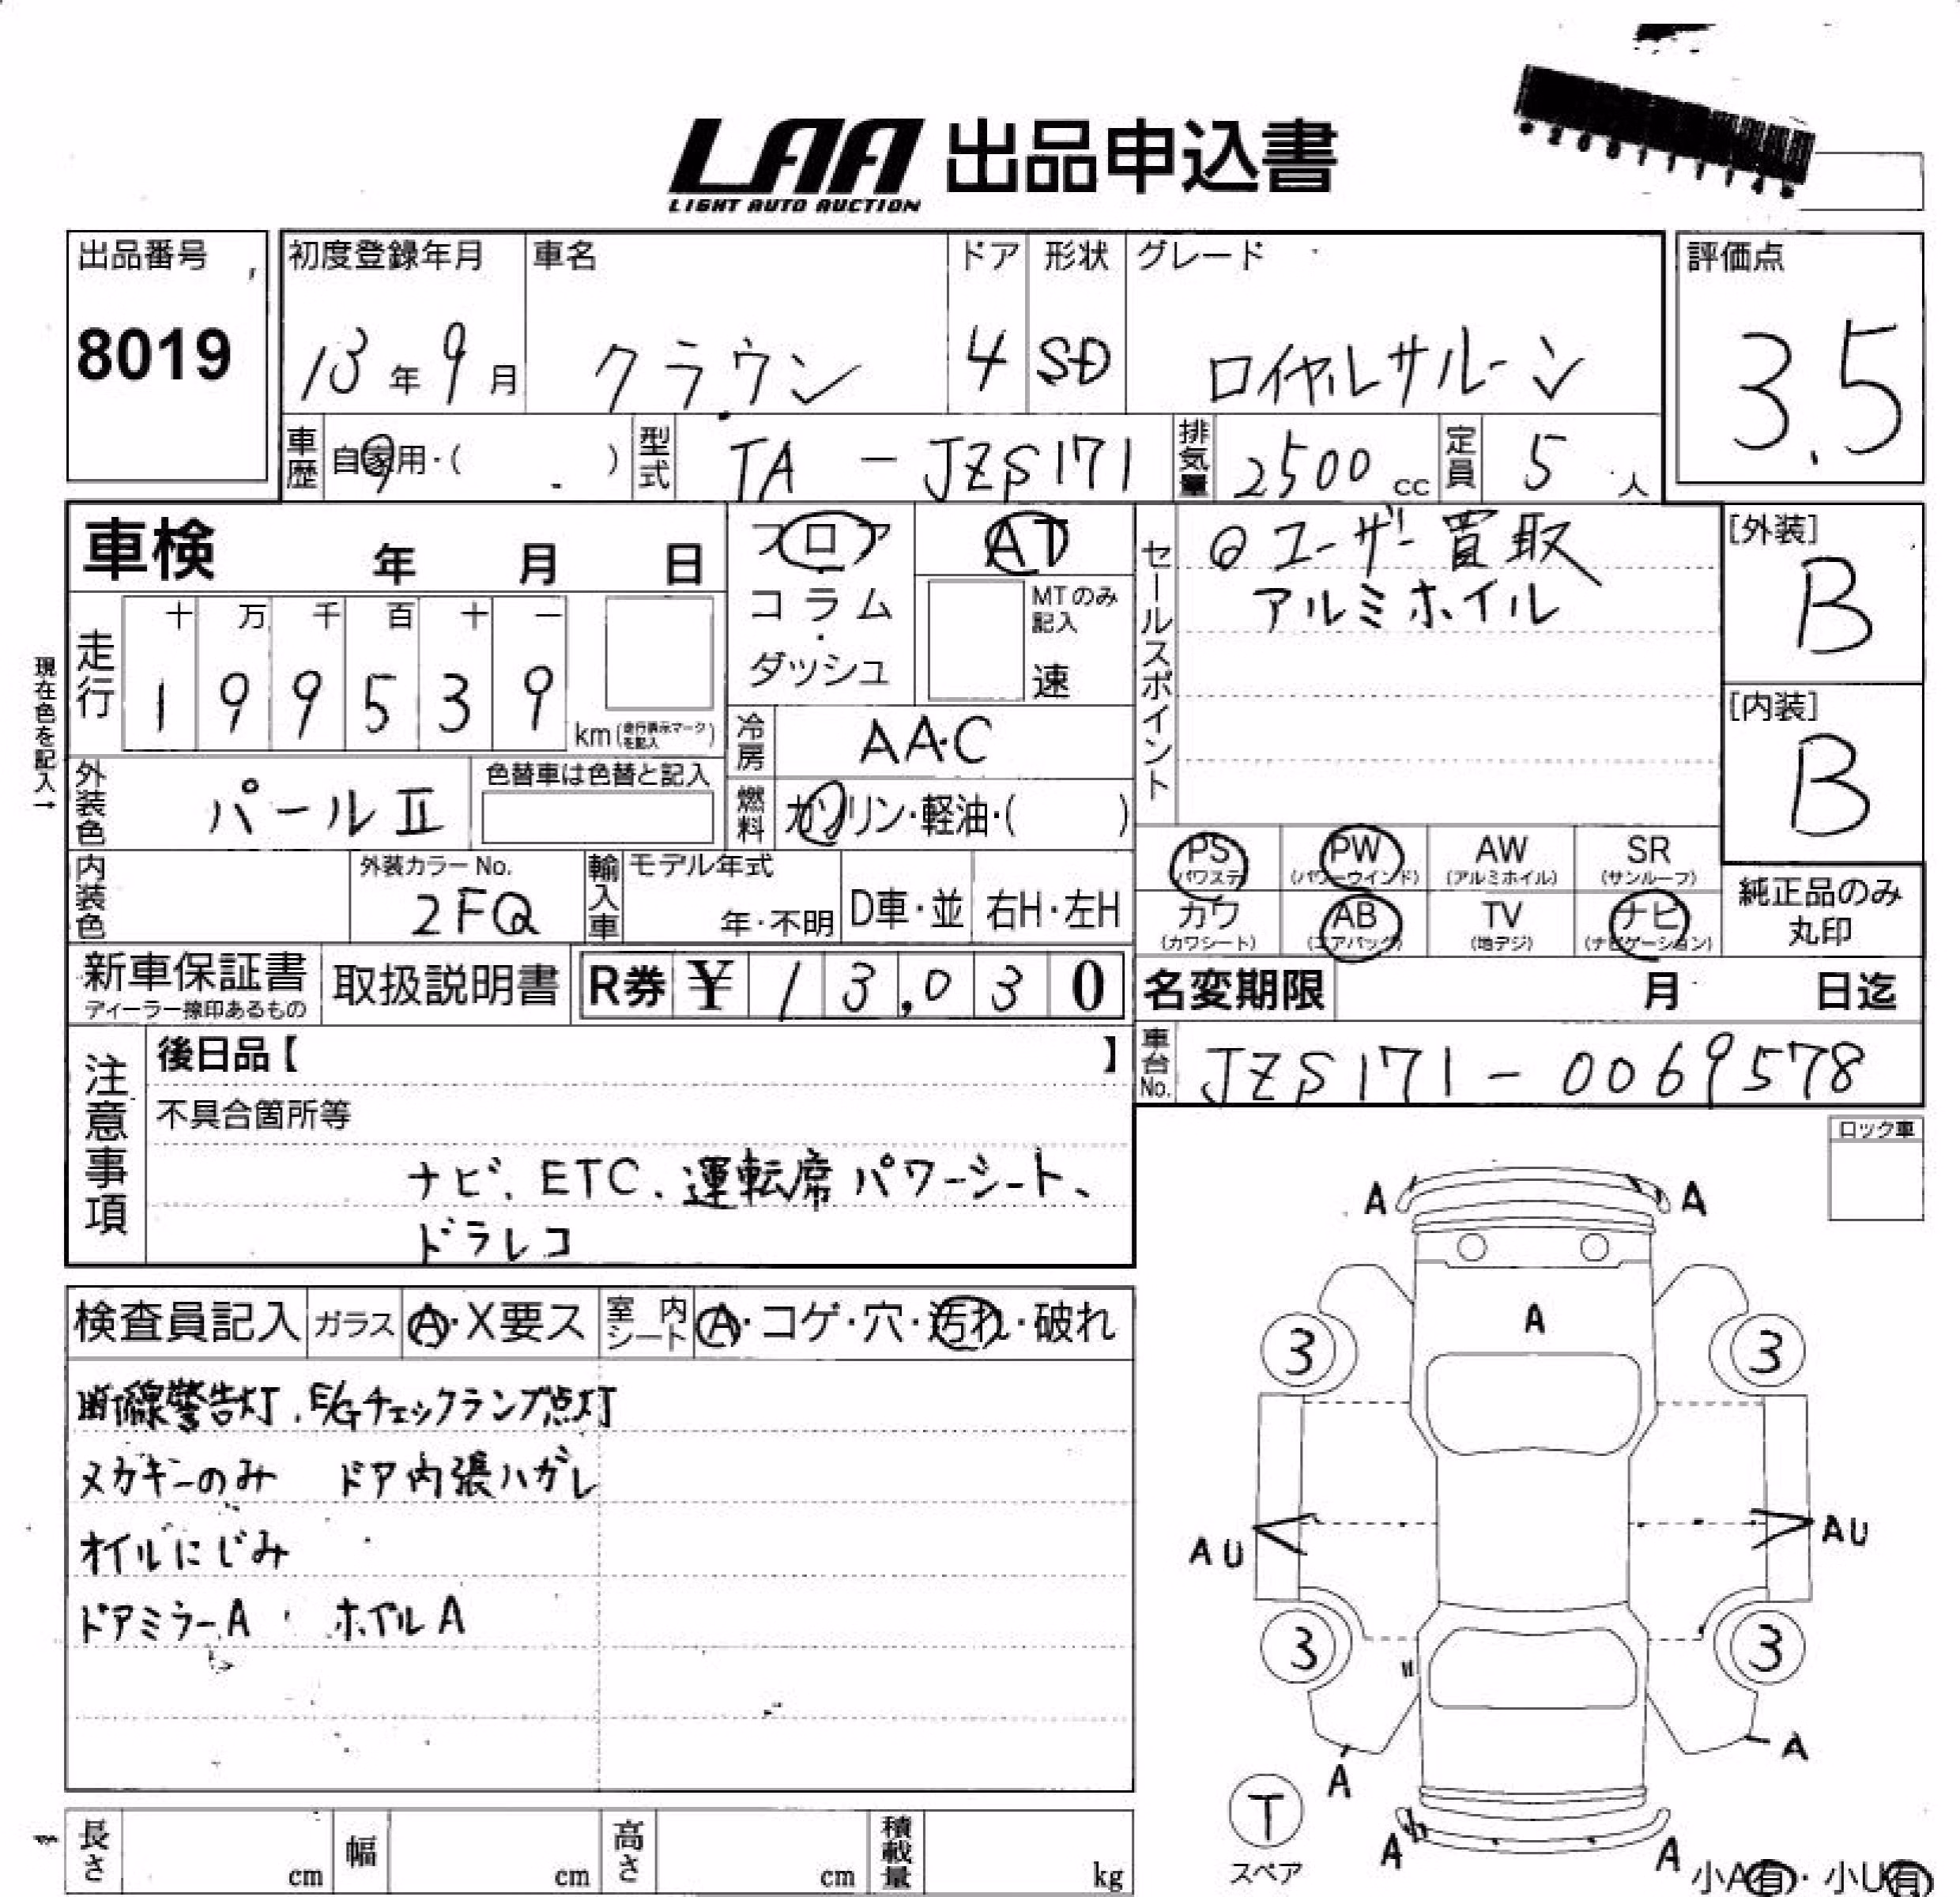 LAA 出品申込書
LIGHT AUTO AUCTION
出品番号
8019
初度登録年月
13年9月
車名
クラウン
ドア
4
形状
SD
グレード
ロイヤルサルーン
評価点
3.5
車歴
自家用・( )
型式
TA - JZS171
排気量
2500 cc
定員
5 人
車検 年 月 日
フロア
・
コラム
・
ダッシュ
AT
MTのみ
記入
速
セールスポイント
◎ユーザー買取
アルミホイル
[外装]
B
[内装]
B
現在色を記入→
走行
十 万 千 百 十 一
1 9 9 5 3 9
km(走行表示マークを記入)
冷房
AAC
外装色
パールⅡ
色替車は色替と記入
燃料
ガソリン・軽油・( )
内装色
外装カラーNo.
2FQ
輸入車
モデル年式
年・不明
D車・並
右H・左H
PS
(パワステ)
PW
(パワーウインド)
AW
(アルミホイル)
SR
(サンルーフ)
カワ
(カワシート)
AB
(エアバッグ)
TV
(地デジ)
ナビ
(ナビゲーション)
純正品のみ
丸印
新車保証書
ディーラー捺印あるもの
取扱説明書
R券 ¥ 13,030
名変期限 月 日迄
車台No.
JZS171-0069578
注意事項
後日品【 】
不具合箇所等
ナビ、ETC、運転席パワーシート、
ドラレコ
ロック車
検査員記入
ガラス
A・X要ス
室内
シート
A・コゲ・穴・汚れ・破れ
断線警告灯、E/Gチェックランプ点灯
ヌカギーのみ ドア内張ハガレ
オイルにじみ
ドアミラーA ホイルA
A A
A
3 3
AU AU
3 3
W
A
A
T
スペア
A A
小A有・小U有
長さ cm
幅 cm
高さ cm
積載量 kg